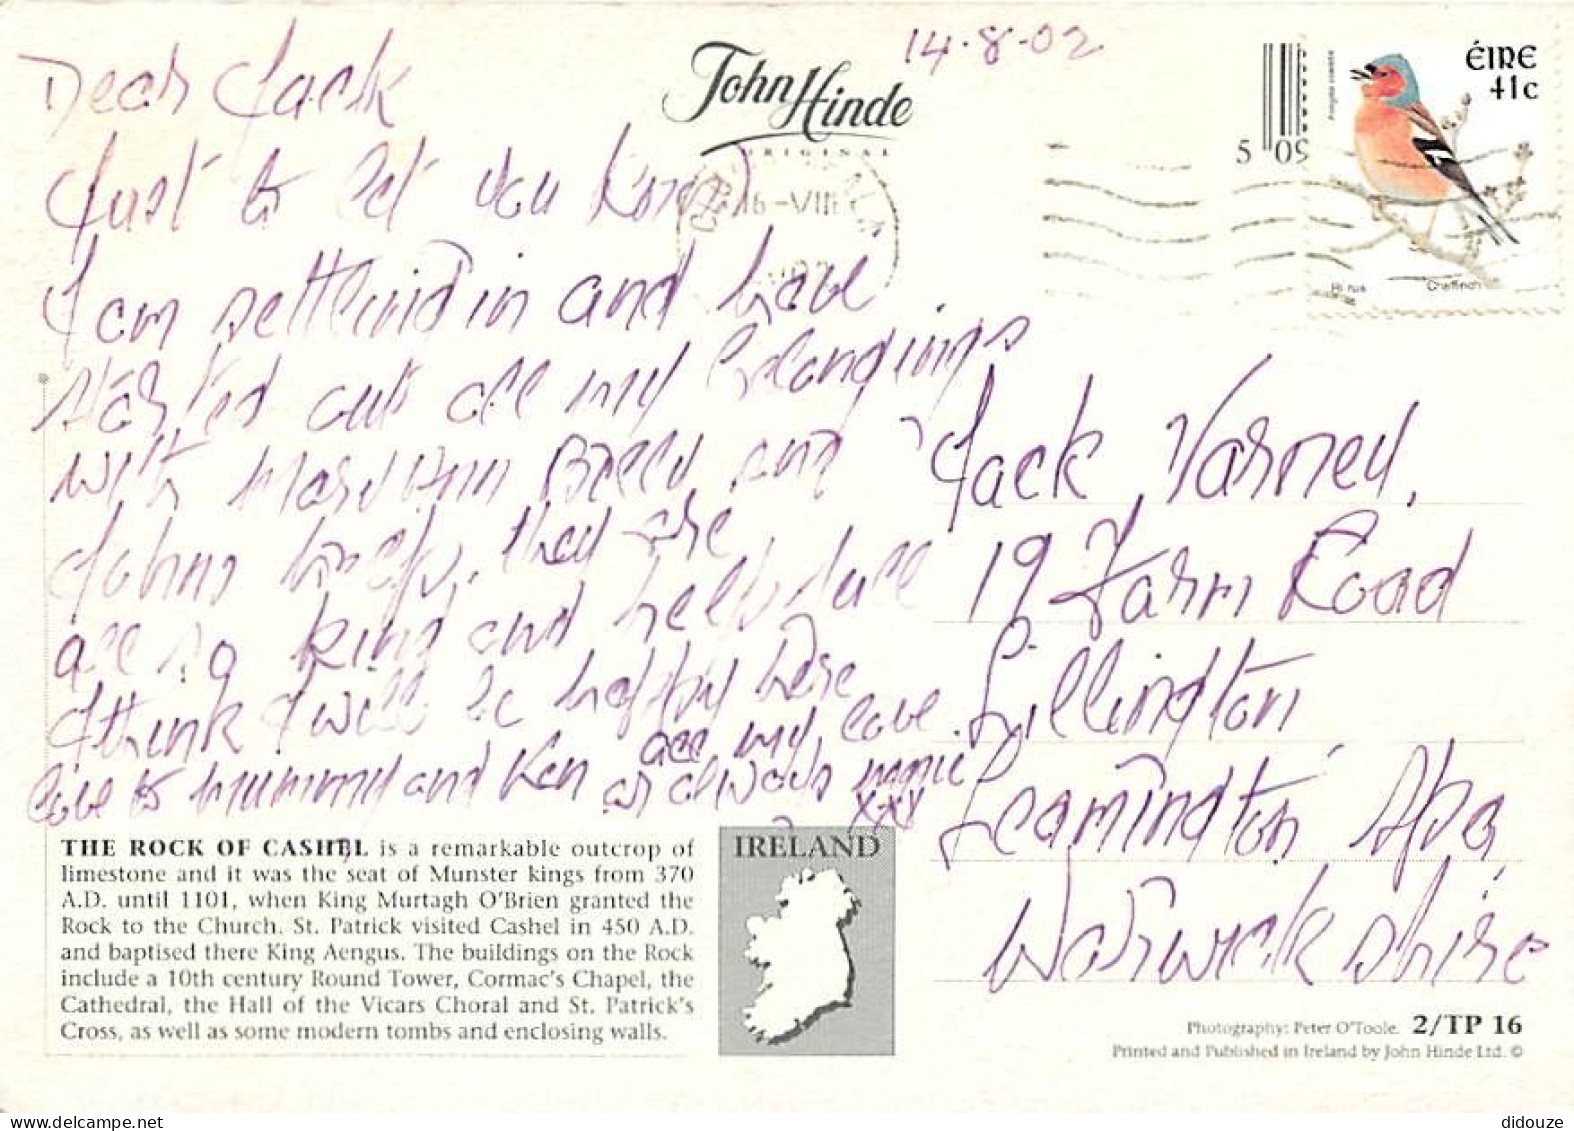 14.8.02
Dear Jack
Just to let you know
I am settling in and have
started out all my belongings
with Mary Ann and
Johns help, they are
all so kind and helpful
I think I will be happy here
all my love
love to Mummy and Ken as always
xxx
Jack Varney,
19 Farm Road
Lillington
Leamington Spa,
Warwickshire
John Hinde
ORIGINAL
16-VIII
5 0S
ÉIRE
41c
Chaffinch
THE ROCK OF CASHEL is a remarkable outcrop of
limestone and it was the seat of Munster kings from 370
A.D. until 1101, when King Murtagh O'Brien granted the
Rock to the Church. St. Patrick visited Cashel in 450 A.D.
and baptised there King Aengus. The buildings on the Rock
include a 10th century Round Tower, Cormac's Chapel, the
Cathedral, the Hall of the Vicars Choral and St. Patrick's
Cross, as well as some modern tombs and enclosing walls.
IRELAND
Photography: Peter O'Toole. 2/TP 16
Printed and Published in Ireland by John Hinde Ltd. ©
delcampe.net
didouze